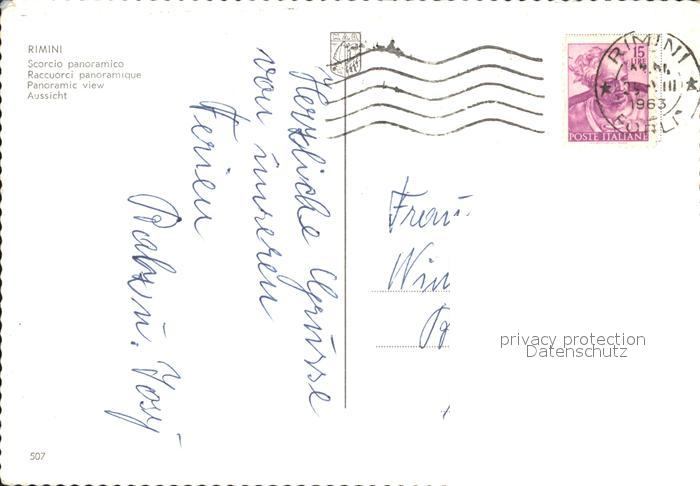 RIMINI
Scorcio panoramico
Raccuorci panoramique
Panoramic view
Aussicht
Herzliche Grüsse
von unseren
Ferien
u. Josy
15
LIRE
POSTE ITALIANE
RIMINI
1963
FORLI
Frau
privacy protection
Datenschutz
507